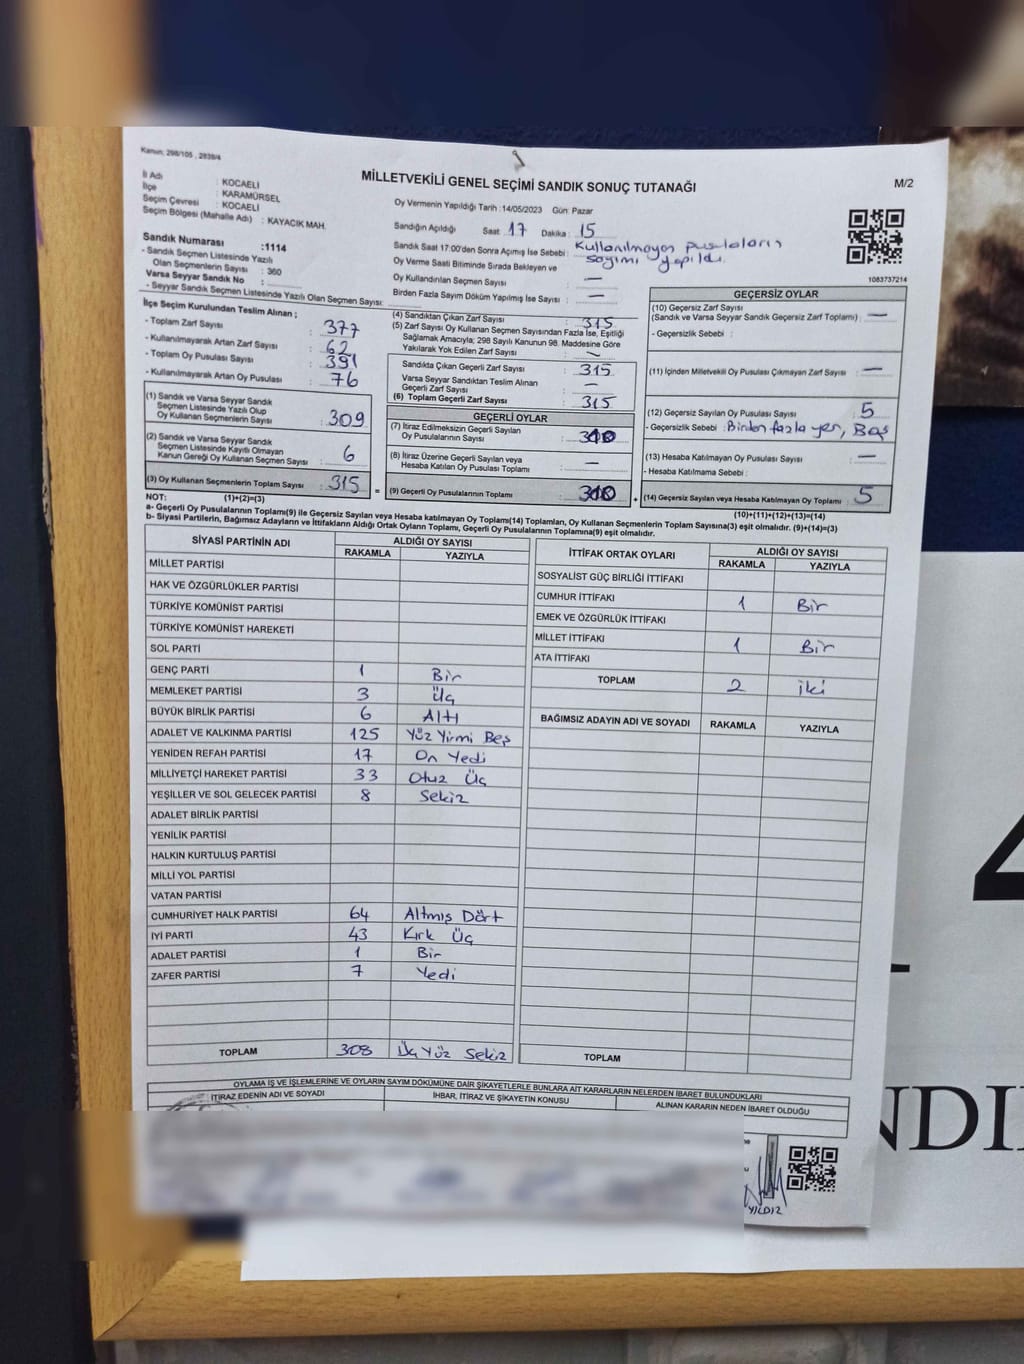 Kanun; 298/105 , 2839/4
MİLLETVEKİLİ GENEL SEÇİMİ SANDIK SONUÇ TUTANAĞI
M/2
İl Adı : KOCAELİ
İlçe : KARAMÜRSEL
Seçim Çevresi : KOCAELİ
Seçim Bölgesi (Mahalle Adı) : KAYACIK MAH.
Sandık Numarası :1114
- Sandık Seçmen Listesinde Yazılı
Olan Seçmenlerin Sayısı : 360
Varsa Seyyar Sandık No :
- Seyyar Sandık Seçmen Listesinde Yazılı Olan Seçmen Sayısı:
Oy Vermenin Yapıldığı Tarih :14/05/2023 Gün: Pazar
Sandığın Açıldığı Saat : 17 Dakika : 15
Sandık Saat 17:00'den Sonra Açımış İse Sebebi : Kullanılmayan pusulaların
sayımı yapıldı.
Oy Verme Saati Bitiminde Sırada Bekleyen ve
Oy Kullandırılan Seçmen Sayısı : —
Birden Fazla Sayım Döküm Yapılmış İse Sayısı : —
1083737214
İlçe Seçim Kurulundan Teslim Alınan ;
- Toplam Zarf Sayısı : 377
- Kullanılmayarak Artan Zarf Sayısı : 62
- Toplam Oy Pusulası Sayısı : 391
- Kullanılmayarak Artan Oy Pusulası : 76
(1) Sandık ve Varsa Seyyar Sandık
Seçmen Listesinde Yazılı Olup
Oy Kullanan Seçmenlerin Sayısı : 309
(2) Sandık ve Varsa Seyyar Sandık
Seçmen Listesinde Kayıtlı Olmayan
Kanun Gereği Oy Kullanan Seçmen Sayısı : 6
(3) Oy Kullanan Seçmenlerin Toplam Sayısı : 315
(4) Sandıktan Çıkan Zarf Sayısı : 315
(5) Zarf Sayısı Oy Kullanan Seçmen Sayısından Fazla İse, Eşitliği
Sağlamak Amacıyla; 298 Sayılı Kanunun 98. Maddesine Göre
Yakılarak Yok Edilen Zarf Sayısı : —
Sandıkta Çıkan Geçerli Zarf Sayısı : 315
Varsa Seyyar Sandıktan Teslim Alınan
Geçerli Zarf Sayısı : —
(6) Toplam Geçerli Zarf Sayısı : 315
GEÇERLİ OYLAR
(7) İtiraz Edilmeksizin Geçerli Sayılan
Oy Pusulalarının Sayısı : 310
(8) İtiraz Üzerine Geçerli Sayılan veya
Hesaba Katılan Oy Pusulası Toplamı : —
= (9) Geçerli Oy Pusulalarının Toplamı : 310 +
GEÇERSİZ OYLAR
(10) Geçersiz Zarf Sayısı
(Sandık ve Varsa Seyyar Sandık Geçersiz Zarf Toplamı) : —
- Geçersizlik Sebebi :
(11) İçinden Milletvekili Oy Pusulası Çıkmayan Zarf Sayısı : —
(12) Geçersiz Sayılan Oy Pusulası Sayısı : 5
- Geçersizlik Sebebi : Birden fazla yer, Boş
(13) Hesaba Katılmayan Oy Pusulası Sayısı : —
- Hesaba Katılmama Sebebi :
(14) Geçersiz Sayılan veya Hesaba Katılmayan Oy Toplamı : 5
NOT: (1)+(2)=(3)
(10)+(11)+(12)+(13)=(14)
a- Geçerli Oy Pusulalarının Toplamı(9) ile Geçersiz Sayılan veya Hesaba katılmayan Oy Toplamı(14) Toplamları, Oy Kullanan Seçmenlerin Toplam Sayısına(3) eşit olmalıdır. (9)+(14)=(3)
b- Siyasi Partilerin, Bağımsız Adayların ve İttifakların Aldığı Ortak Oyların Toplamı, Geçerli Oy Pusulalarının Toplamına(9) eşit olmalıdır.
SİYASİ PARTİNİN ADI ALDIĞI OY SAYISI
RAKAMLA YAZIYLA
MİLLET PARTİSİ
HAK VE ÖZGÜRLÜKLER PARTİSİ
TÜRKİYE KOMÜNİST PARTİSİ
TÜRKİYE KOMÜNİST HAREKETİ
SOL PARTİ
GENÇ PARTİ 1 Bir
MEMLEKET PARTİSİ 3 Üç
BÜYÜK BİRLİK PARTİSİ 6 Altı
ADALET VE KALKINMA PARTİSİ 125 Yüz Yirmi Beş
YENİDEN REFAH PARTİSİ 17 On Yedi
MİLLİYETÇİ HAREKET PARTİSİ 33 Otuz Üç
YEŞİLLER VE SOL GELECEK PARTİSİ 8 Sekiz
ADALET BİRLİK PARTİSİ
YENİLİK PARTİSİ
HALKIN KURTULUŞ PARTİSİ
MİLLİ YOL PARTİSİ
VATAN PARTİSİ
CUMHURİYET HALK PARTİSİ 64 Altmış Dört
İYİ PARTİ 43 Kırk Üç
ADALET PARTİSİ 1 Bir
ZAFER PARTİSİ 7 Yedi
TOPLAM 308 Üç Yüz Sekiz
İTTİFAK ORTAK OYLARI ALDIĞI OY SAYISI
RAKAMLA YAZIYLA
SOSYALİST GÜÇ BİRLİĞİ İTTİFAKI
CUMHUR İTTİFAKI 1 Bir
EMEK VE ÖZGÜRLÜK İTTİFAKI
MİLLET İTTİFAKI 1 Bir
ATA İTTİFAKI
TOPLAM 2 iki
BAĞIMSIZ ADAYIN ADI VE SOYADI RAKAMLA YAZIYLA
TOPLAM
OYLAMA İŞ VE İŞLEMLERİNE VE OYLARIN SAYIM DÖKÜMÜNE DAİR ŞİKAYETLERLE BUNLARA AİT KARARLARIN NELERDEN İBARET BULUNDUKLARI
İTİRAZ EDENİN ADI VE SOYADI İHBAR, İTİRAZ VE ŞİKAYETİN KONUSU ALINAN KARARIN NEDEN İBARET OLDUĞU
YILDIZ
4
NDI